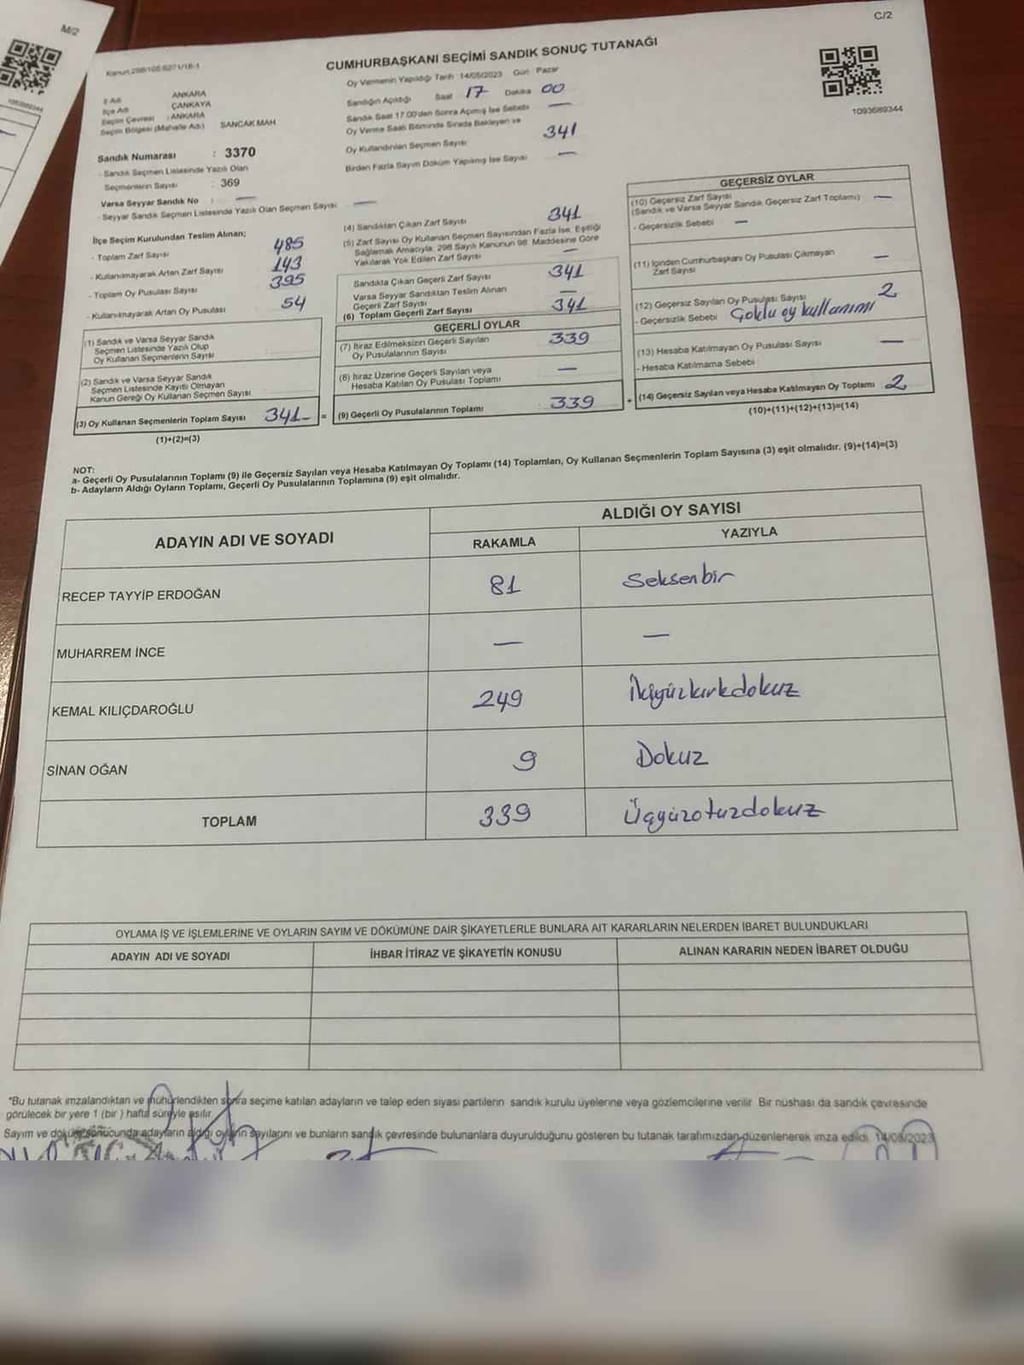 M/2
C/2
CUMHURBAŞKANI SEÇİMİ SANDIK SONUÇ TUTANAĞI
Oy Vermenin Yapıldığı Tarih : 14/05/2023 Gün : Pazar
1093689344
İl Adı ANKARA
İlçe Adı ÇANKAYA
Seçim Çevresi : ANKARA
Seçim Bölgesi (Mahalle Adı) SANCAK MAH.
Sandık Numarası : 3370
- Sandık Seçmen Listesinde Yazılı Olan
Seçmenlerin Sayısı : 369
Varsa Seyyar Sandık No : —
- Seyyar Sandık Seçmen Listesinde Yazılı Olan Seçmen Sayısı —
Sandığın Açıldığı Saat 17 Dakika 00
Sandık Saat 17.00'den Sonra Açılmış İse Sebebi —
Oy Verme Saati Bitiminde Sırada Bekleyen ve
Oy Kullandırılan Seçmen Sayısı 341
Birden Fazla Sayım Döküm Yapılmış İse Sayısı —
İlçe Seçim Kurulundan Teslim Alınan;
- Toplam Zarf Sayısı 485
- Kullanılmayarak Artan Zarf Sayısı 143
- Toplam Oy Pusulası Sayısı 395
- Kullanılmayarak Artan Oy Pusulası 54
(1) Sandık ve Varsa Seyyar Sandık
Seçmen Listesinde Yazılı Olup
Oy Kullanan Seçmenlerin Sayısı
(2) Sandık ve Varsa Seyyar Sandık
Seçmen Listesinde Kayıtlı Olmayan
Kanun Gereği Oy Kullanan Seçmen Sayısı
(3) Oy Kullanan Seçmenlerin Toplam Sayısı 341 =
(1)+(2)=(3)
(4) Sandıktan Çıkan Zarf Sayısı 341
(5) Zarf Sayısı Oy Kullanan Seçmen Sayısından Fazla İse, Eşitliği
Sağlamak Amacıyla, 298 Sayılı Kanunun 98. Maddesine Göre
Yakılarak Yok Edilen Zarf Sayısı —
Sandıkta Çıkan Geçerli Zarf Sayısı 341
Varsa Seyyar Sandıktan Teslim Alınan
Geçerli Zarf Sayısı —
(6) Toplam Geçerli Zarf Sayısı 341
GEÇERLİ OYLAR
(7) İtiraz Edilmeksizin Geçerli Sayılan
Oy Pusulalarının Sayısı 339
(8) İtiraz Üzerine Geçerli Sayılan veya
Hesaba Katılan Oy Pusulası Toplamı —
(9) Geçerli Oy Pusulalarının Toplamı 339 +
GEÇERSİZ OYLAR
(10) Geçersiz Zarf Sayısı —
(Sandık ve Varsa Seyyar Sandık, Geçersiz Zarf Toplamı)
- Geçersizlik Sebebi —
(11) İçinden Cumhurbaşkanı Oy Pusulası Çıkmayan
Zarf Sayısı —
(12) Geçersiz Sayılan Oy Pusulası Sayısı 2
- Geçersizlik Sebebi Çoklu oy kullanımı
(13) Hesaba Katılmayan Oy Pusulası Sayısı —
- Hesaba Katılmama Sebebi
(14) Geçersiz Sayılan veya Hesaba Katılmayan Oy Toplamı 2
(10)+(11)+(12)+(13)=(14)
NOT:
a- Geçerli Oy Pusulalarının Toplamı (9) ile Geçersiz Sayılan veya Hesaba Katılmayan Oy Toplamı (14) Toplamları, Oy Kullanan Seçmenlerin Toplam Sayısına (3) eşit olmalıdır. (9)+(14)=(3)
b- Adayların Aldığı Oyların Toplamı, Geçerli Oy Pusulalarının Toplamına (9) eşit olmalıdır.
ADAYIN ADI VE SOYADI
ALDIĞI OY SAYISI
RAKAMLA YAZIYLA
RECEP TAYYİP ERDOĞAN 81 Seksenbir
MUHARREM İNCE — —
KEMAL KILIÇDAROĞLU 249 İkiyüzkırkdokuz
SİNAN OĞAN 9 Dokuz
TOPLAM 339 Üçyüzotuzdokuz
OYLAMA İŞ VE İŞLEMLERİNE VE OYLARIN SAYIM VE DÖKÜMÜNE DAİR ŞİKAYETLERLE BUNLARA AİT KARARLARIN NELERDEN İBARET BULUNDUKLARI
ADAYIN ADI VE SOYADI İHBAR İTİRAZ VE ŞİKAYETİN KONUSU ALINAN KARARIN NEDEN İBARET OLDUĞU
"Bu tutanak imzalandıktan ve mühürlendikten sonra seçime katılan adayların ve talep eden siyasi partilerin sandık kurulu üyelerine veya gözlemcilerine verilir. Bir nüshası da sandık çevresinde
görülecek bir yere 1 (bir) hafta süreyle asılır.
Sayım ve döküm sonucunda adayların aldığı oyların sayılarını ve bunların sandık çevresinde bulunanlara duyurulduğunu gösteren bu tutanak tarafımızdan düzenlenerek imza edildi. 14/05/2023